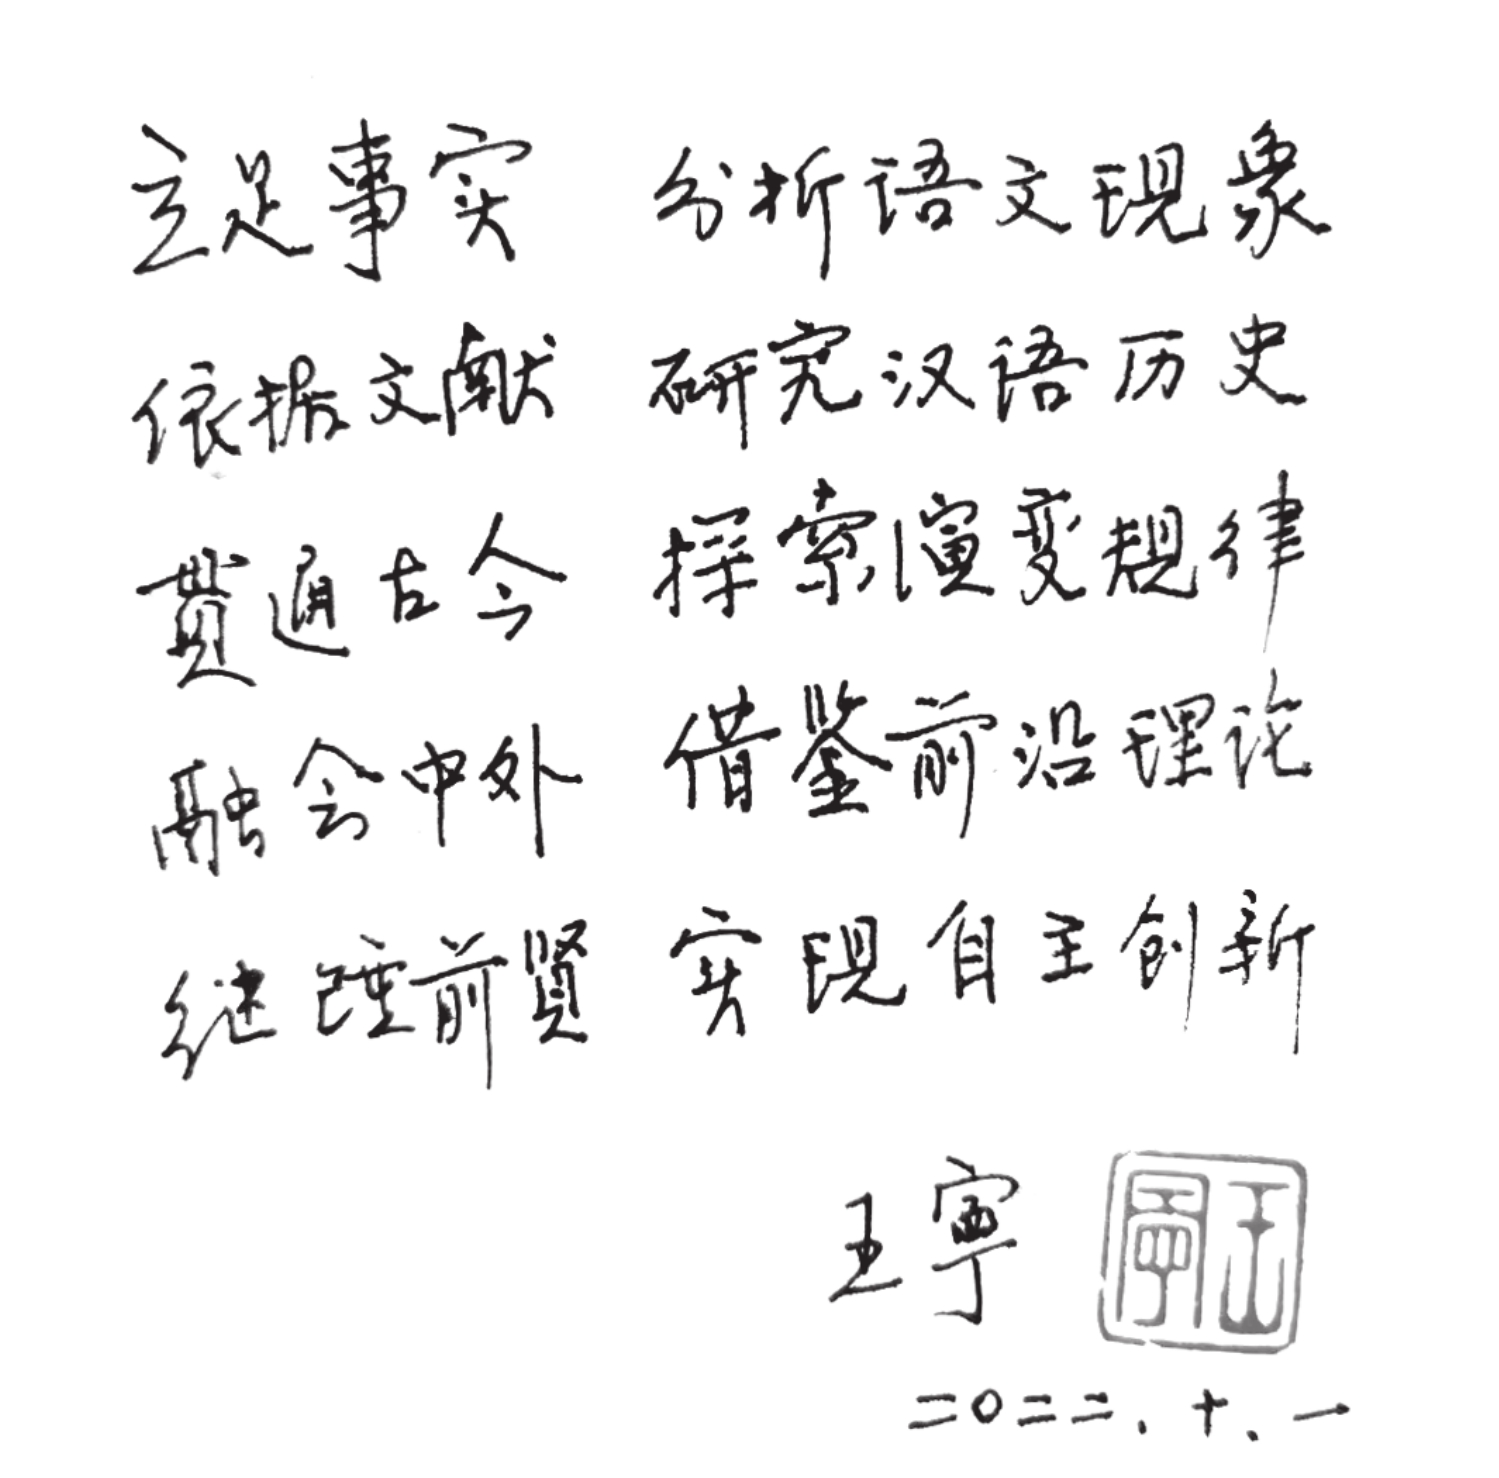 立足事实 分析语文现象
依据文献 研究汉语历史
贯通古今 探索演变规律
融会中外 借鉴前沿理论
继踵前贤 实现自主创新
王寧
王寧
二〇二二.十.一